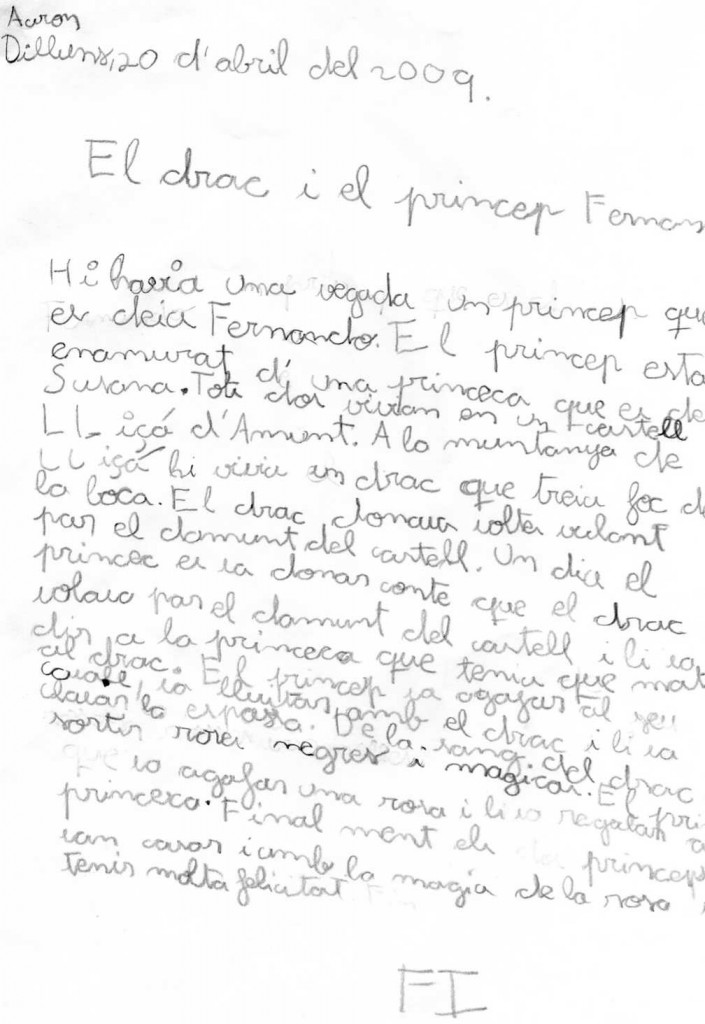 Aaron
Dilluns, 20 d'abril del 2009.
El drac i el princep Fernan
Hi havia una vegada un princep que
es deia Fernando. El princep esta
enamurat d'una princeca que es de
Susana. Tots dos vivian en un castell
LL içá d'Amunt. A la muntanya de
LL içá hi vivia un drac que treia foc de
la boca. El drac donava voltes volant
par el damunt del castell. Un dia el
princec es va donar conte que el drac
volava par el damunt del castell i li va
dir a la princeca que tenia que mat
al drac. El princep va agafar al seu
cavall, va lluitar amb el drac i li va
clavar la espasa. De la sang del drac
sortir roses negres i magicas. El pri
que va agafar una rosa i li va regalar a
princesa. Final ment els princeps
van casar i amb la magia de la rosa
tenir molta felicitat
FI